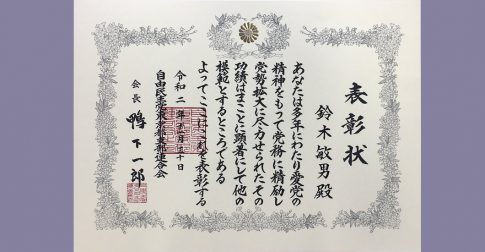 表彰状
鈴木敏男殿
あなたは多年にわたり愛党の
精神をもって党務に精励し
党勢拡大に尽力せられたその
功績はまことに顕著にして他の
模範とするところである
よってここにこれを表彰する
令和二年
自由民主党東京都支部連合会
会長 鴨下一郎